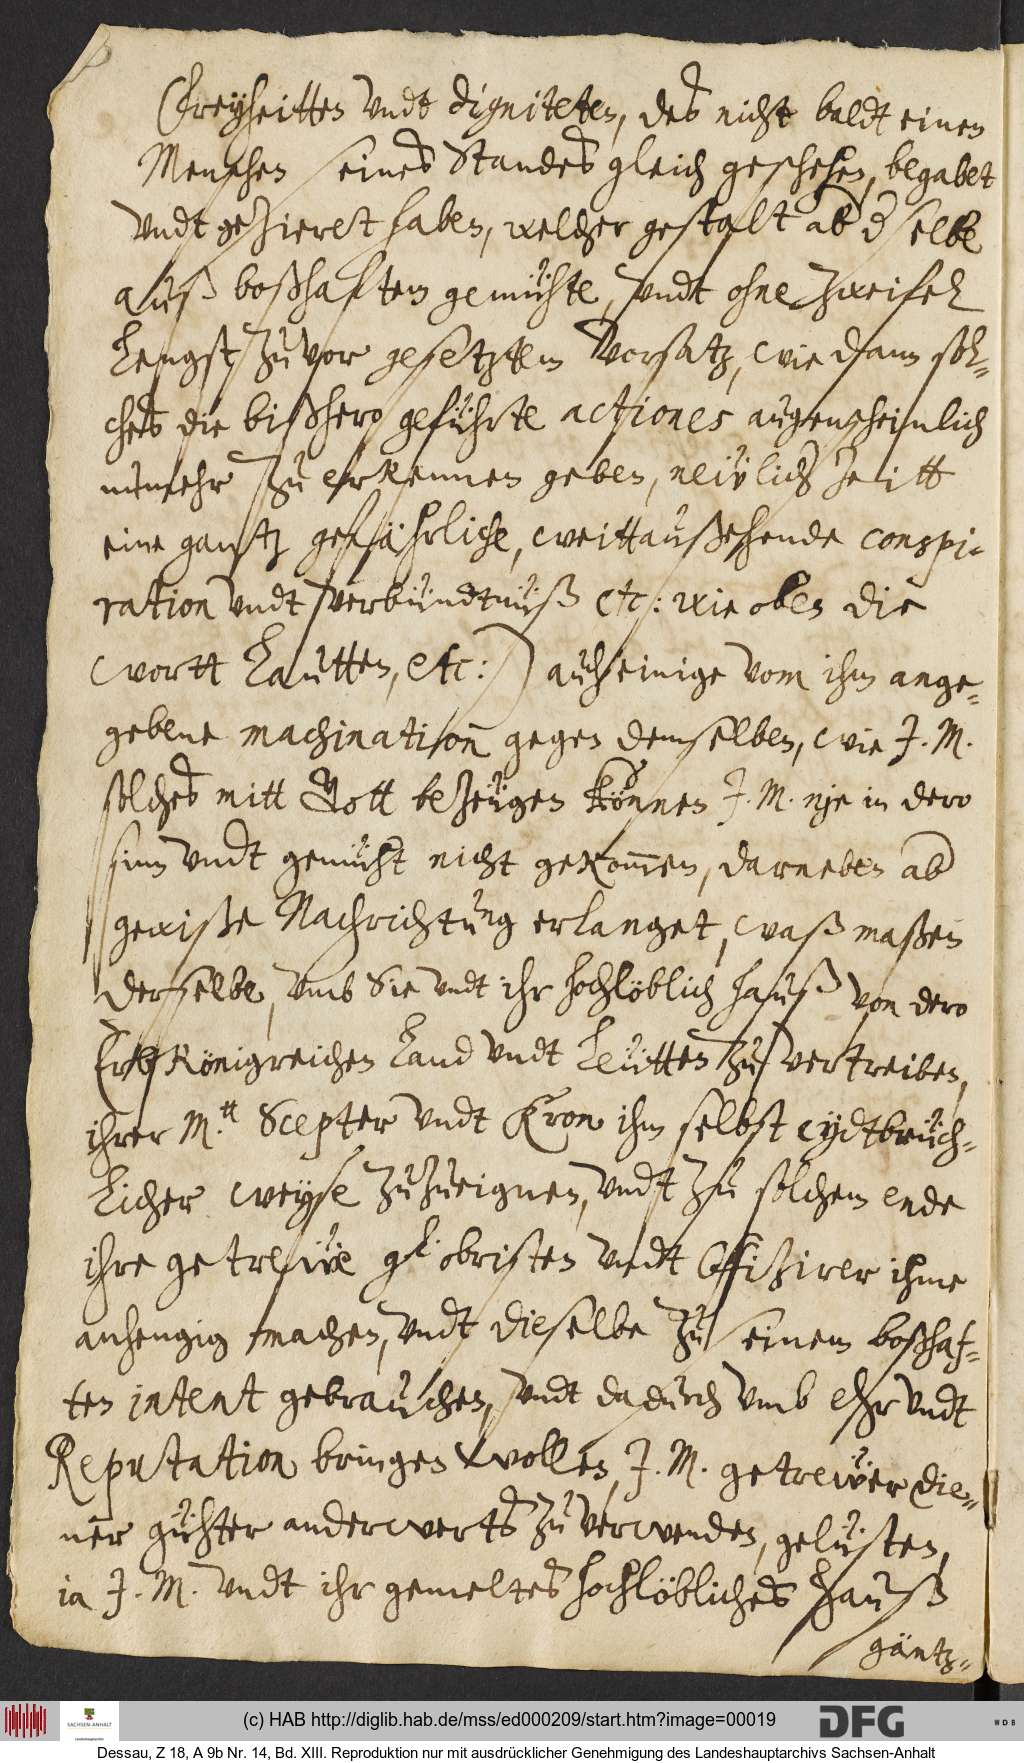 Freyheitten Vndt digniteten, des nicht baldt einen
Menschen seines Standes gleich geschehen, begabet
Vndt gezieret haben, welcher gestalt ab dselbe
auß boßhaftem gemüthe, Vndt ohne Zweifel
Lengst zuvor gesetztem Vorsatz, wie dann sol-
ches die bißhero geführte actiones augenscheinlich
nunmehr zu erkennen geben, neüvlich Zeitt
eine gantz gefährliche, weittaußehende conspi-
ration Vndt Verbündtnüß etc: wie oben die
wortt Lautten, etc:) auch einige vom ihm ange-
gebene machination gegen demselben, wie J. M.
solches mitt Gott bezeügen können J. M. nje in dero
sinn Vndt gemüht nicht gekom̄en, darneben ab
gewiße Nachrichtung erlanget, waß maßen
derselbe, Vmb Sie Vndt ihr hochlöblich hauß von dero
Erb Königreichen Land Vndt Leütten zu vertreiben,
ihrer M.tt Scepter Vndt Kron ihm selbst eydtbrüch-
Licher weyse zuzueignen, Vndt zu solchem ende
ihre getreüwe gl. obristen Vndt Offizirer ihme
anhengig machen, Vndt dieselbe zu seinem boßhaf-
ten intent gebrauchen, Vndt dadurch Vmb Ehr Vndt
Reputation bringen wollen, J. M. getreüwer die-
ner güther anderwerts zu verwenden, gelüsten,
ia J. M. Vndt ihr gemeltes hochlöbliches Hauß
gäntz-
(c) HAB http://diglib.hab.de/mss/ed000209/start.htm?image=00019
SACHSEN-ANHALT
DFG
WDB
Dessau, Z 18, A 9b Nr. 14, Bd. XIII. Reproduktion nur mit ausdrücklicher Genehmigung des Landeshauptarchivs Sachsen-Anhalt